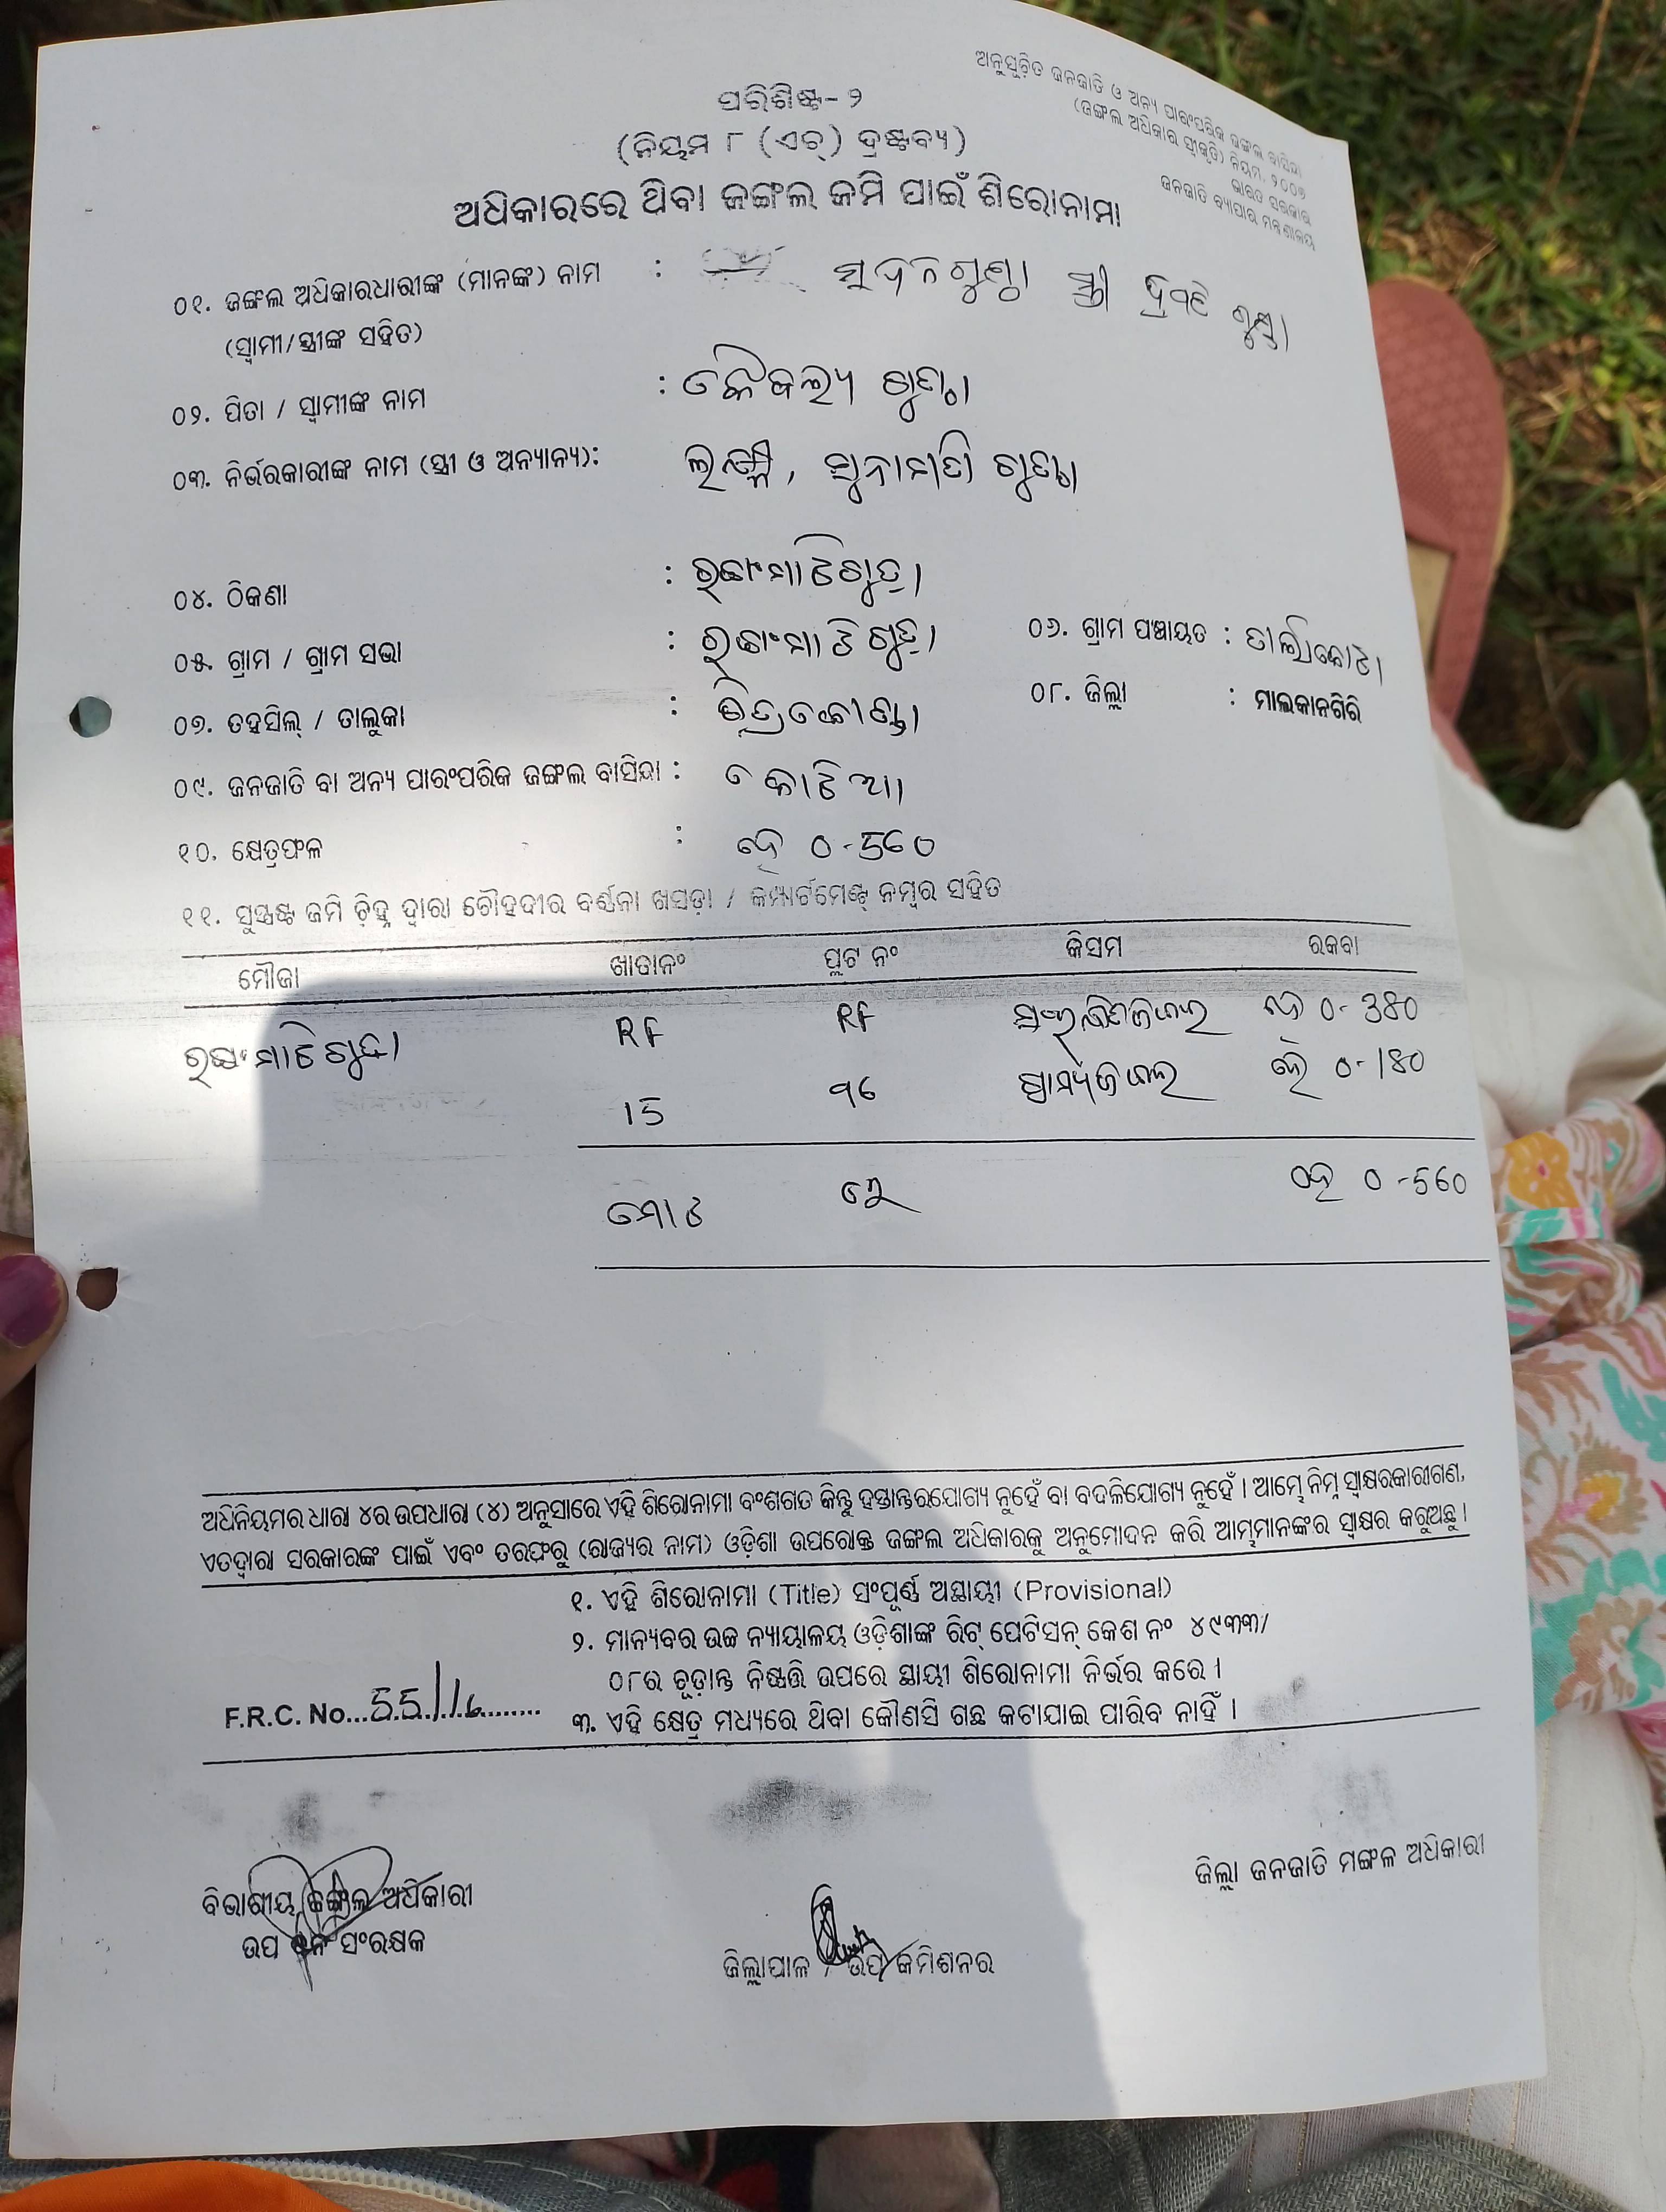 ଅନୁସୂଚିତ ଜନଜାତି ଓ ଅନ୍ୟ ପାରଂପରିକ ଜଙ୍ଗଲ ବାସିନ୍ଦା
(ଜଙ୍ଗଲ ଅଧିକାର ସ୍ୱୀକୃତି) ନିୟମ, ୨୦୦୭
ଭାରତ ସରକାର
ଜନଜାତି ବ୍ୟାପାର ମନ୍ତ୍ରଣାଳୟ
ପରିଶିଷ୍ଟ-୨
(ନିୟମ ୮ (ଏଚ୍) ଦ୍ରଷ୍ଟବ୍ୟ)
ଅଧିକାରରେ ଥିବା ଜଙ୍ଗଲ ଜମି ପାଇଁ ଶିରୋନାମା
୦୧. ଜଙ୍ଗଲ ଅଧିକାରଧାରୀଙ୍କ (ମାନଙ୍କ) ନାମ : ସ୍ତ୍ରୀ
(ସ୍ୱାମୀ/ସ୍ତ୍ରୀଙ୍କ ସହିତ)
୦୨. ପିତା / ସ୍ୱାମୀଙ୍କ ନାମ :
୦୩. ନିର୍ଭରକାରୀଙ୍କ ନାମ (ସ୍ତ୍ରୀ ଓ ଅନ୍ୟାନ୍ୟ):
୦୪. ଠିକଣା :
୦୫. ଗ୍ରାମ / ଗ୍ରାମ ସଭା :
୦୬. ଗ୍ରାମ ପଞ୍ଚାୟତ :
୦୭. ତହସିଲ୍ / ତାଲୁକା :
୦୮. ଜିଲ୍ଲା : ମାଲକାନଗିରି
୦୯. ଜନଜାତି ବା ଅନ୍ୟ ପାରଂପରିକ ଜଙ୍ଗଲ ବାସିନ୍ଦା : କୋଟିଆ
୧୦. କ୍ଷେତ୍ରଫଳ : ହେ 0-560
୧୧. ସୁସ୍ପଷ୍ଟ ଜମି ଚିହ୍ନ ଦ୍ୱାରା ଚୌହଦୀର ବର୍ଣ୍ଣନା ଖସଡ଼ା / କମ୍ପାର୍ଟମେଣ୍ଟ୍ ନମ୍ବର ସହିତ
ମୌଜା ଖାତାନଂ ପ୍ଲଟ ନଂ କିସମ ରକବା
RF RF ହେ 0-380
15 ହେ 0-180
ମୋଟ ହେ 0-560
ଅଧିନିୟମର ଧାରା ୪ର ଉପଧାରା (୪) ଅନୁସାରେ ଏହି ଶିରୋନାମା ବଂଶଗତ କିନ୍ତୁ ହସ୍ତାନ୍ତରଯୋଗ୍ୟ ନୁହେଁ ବା ବଦଳିଯୋଗ୍ୟ ନୁହେଁ । ଆମ୍ଭେ ନିମ୍ନ ସ୍ୱାକ୍ଷରକାରୀଗଣ,
ଏତଦ୍ଦ୍ୱାରା ସରକାରଙ୍କ ପାଇଁ ଏବଂ ତରଫରୁ (ରାଜ୍ୟର ନାମ) ଓଡ଼ିଶା ଉପରୋକ୍ତ ଜଙ୍ଗଲ ଅଧିକାରକୁ ଅନୁମୋଦନ କରି ଆମ୍ଭମାନଙ୍କର ସ୍ୱାକ୍ଷର କରୁଅଛୁ ।
୧. ଏହି ଶିରୋନାମା (Title) ସଂପୂର୍ଣ୍ଣ ଅସ୍ଥାୟୀ (Provisional)
୨. ମାନ୍ୟବର ଉଚ୍ଚ ନ୍ୟାୟାଳୟ ଓଡ଼ିଶାଙ୍କ ରିଟ୍ ପେଟିସନ୍ କେଶ ନଂ ୪୯୩୩/
୦୮ର ଚୂଡ଼ାନ୍ତ ନିଷ୍ପତ୍ତି ଉପରେ ସ୍ଥାୟୀ ଶିରୋନାମା ନିର୍ଭର କରେ ।
F.R.C. No...55/16.........
୩. ଏହି କ୍ଷେତ୍ର ମଧ୍ୟରେ ଥିବା କୌଣସି ଗଛ କଟାଯାଇ ପାରିବ ନାହିଁ ।
ବିଭାଗୀୟ ଜଙ୍ଗଲ ଅଧିକାରୀ
ଉପ ବନ ସଂରକ୍ଷକ
ଜିଲ୍ଲାପାଳ / ଉପ କମିଶନର
ଜିଲ୍ଲା ଜନଜାତି ମଙ୍ଗଳ ଅଧିକାରୀ